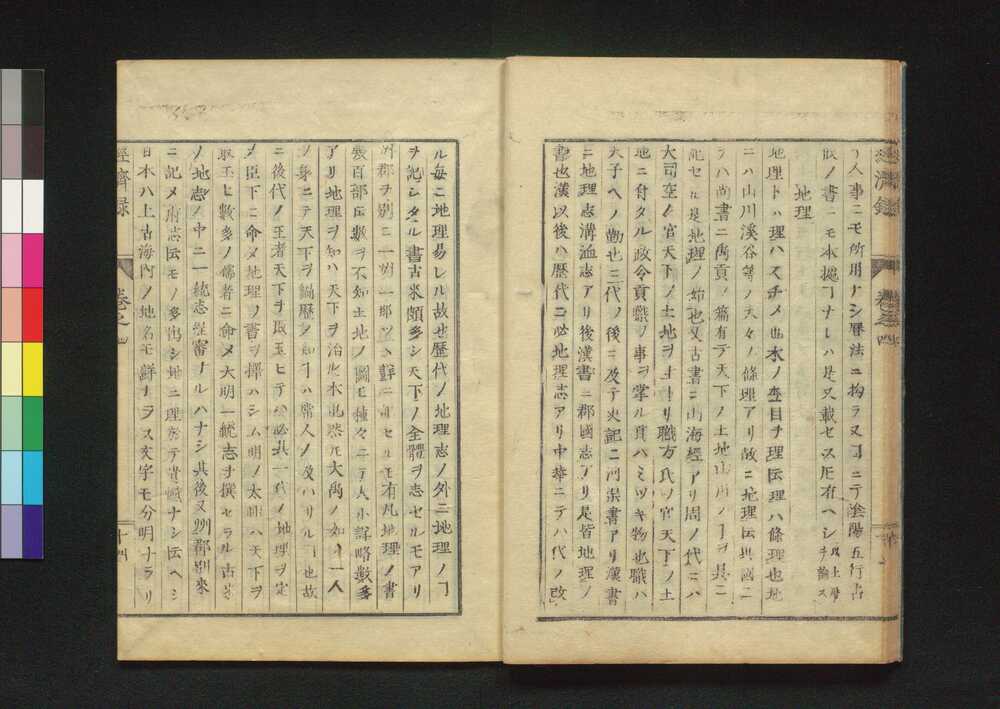 人事ニモ所用ナシ暦法ニ拘ラヌヿニテ陰陽五行占
ノ書ニモ本據ナレハ是又載セス
地理
地理トハ理ハスチメ也木ノ杢目ヲ理ト云理ハ條理也地
ニハ山川溪谷等ノ夫々ノ條理アリ故ニ地理ト云
ハ尚書ニ禹貢ノ篇有テ天下ノ土地山川ノヿヲ具ニ
記セリ是地理ノ始也又古書ニ山海經アリ周ノ代ニハ
大司空ノ官天下ノ土地ヲ主トリ職方氏ノ官天下ノ土
地ニ付タル政令貢職ノ事ヲ掌ル貢ハミツキ物也職ハ
天子ヘノ勤也三代ノ後ニ及テ史記ニ河渠書アリ漢書
ニ地理志溝洫志アリ後漢書ニ郡國志アリ是皆地理ノ
書也漢以後ハ歴代ニ必地理志アリ中華ニテハ代ノ改
ル毎ニ地理易レル故也歴代ノ地理志ノ外ニ地理ノヿ
ヲ記シタル書古來頗多シ天下ノ全體ヲ志セルモアリ
州郡ヲ別ニ一州一郡ツヽ辭ニ記セルモ有凡地理ノ書
幾百部ト云數ヲ不知土地ノ圖モ種々ニテ大小詳略數多
アリ地理ヲ知ハ天下ヲ治ル本也然レモ大禹ノ如ク一人
ノ身ニテ天下ヲ編歴シ知ヿハ常人ノ及ハサルヿ也故
ニ後代ノ王者天下ヲ取玉ヒテハ必其一代ノ地理ヲ定
メ臣下ニ命メ地理ノ書ヲ撰ハシム明ノ太祖ハ天下ヲ
取玉ヒ數多ノ儒者ニ命メ大明一統志ヲ撰セラル古今
ノ地志ノ中ニ一統志程審ナルハナシ其後又州郡別來
ニ記メ府志ト云モノ多出シ地ニ理於テ遺憾ナシト云ヘシ
日本ハ上古海内ノ地名モ鮮ナラス文字モ分明ナラサリ
經濟録
卷之四
十四